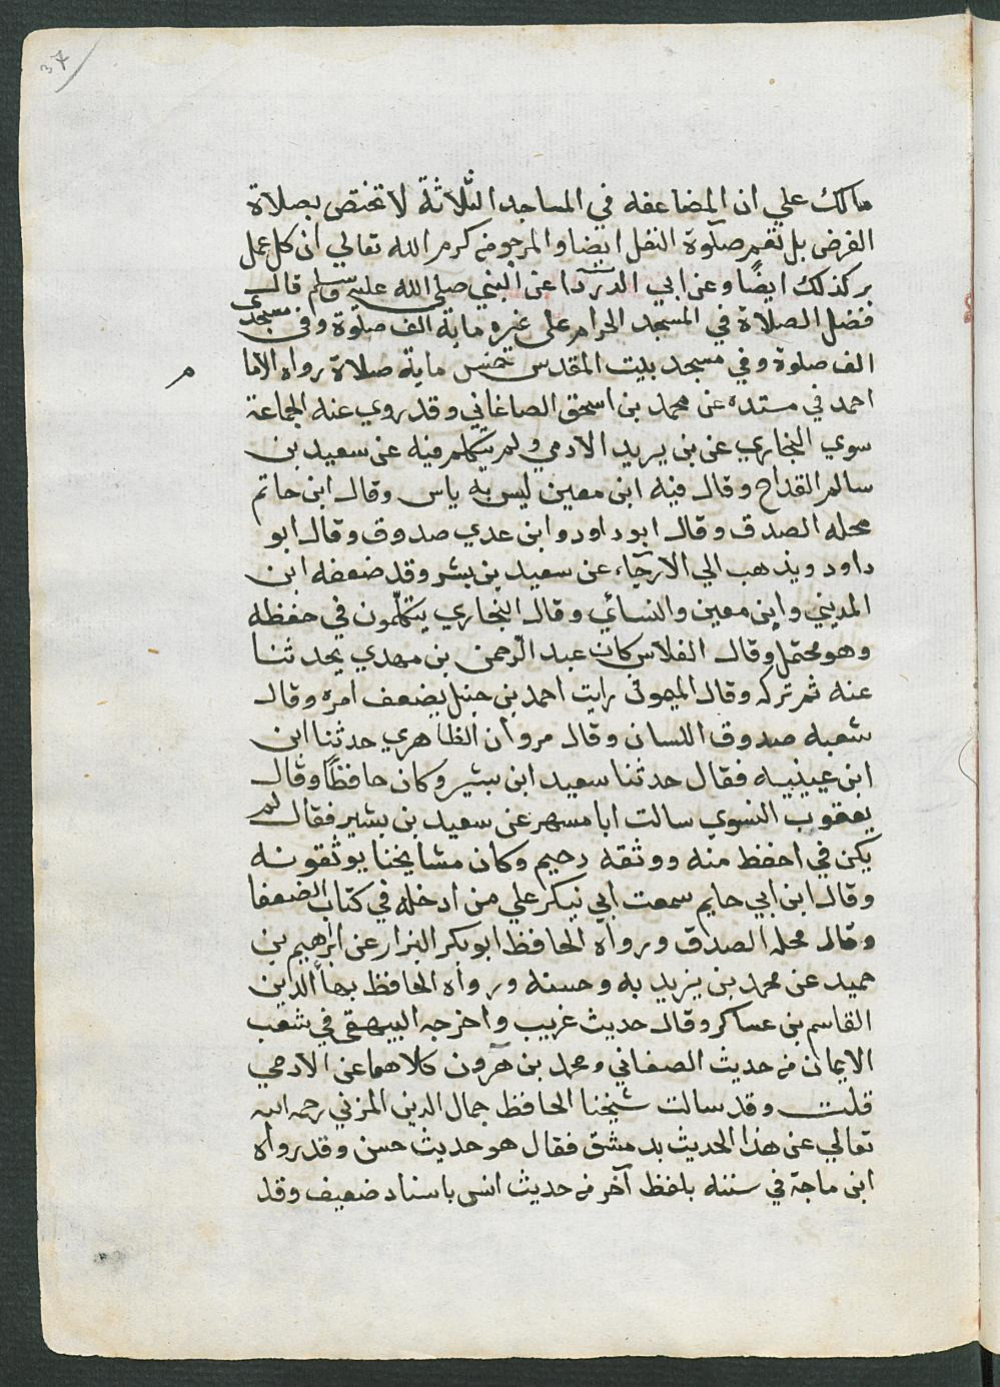 37
مالك علي ان المضاعفه في المساجد الثلاثة لا تختص بصلاة
الفرض بل تعم صلوة النفل ايضا والمرجو من كرم الله تعالي ان كل عمل
بر كذلك ايضًا وعن ابي الدردآ عن النبي صلي الله عليه وسلم قال
فضل الصلاة في المسجد الحرام علي غيره ماية الف صلوة وفي مسجدي
الف صلوة وفي مسجد بيت المقدس خمس ماية صلاة رواه الاما
م
احمد في مسنده عن محمد بن اسحق الصاغاني وقد روي عنه الجماعة
سوي البخاري عن بن يريد الادمي ولم يتكلم فيه عن سعيد بن
سالم القداح وقال فيه ابن معين ليس به ياس وقال ابن حاتم
محله الصدق وقال ابو داود وابن عدي صدوق وقال ابو
داود ويذهب الي الارجآء عن سعيد بن بشر وقد ضعفه ابن
المديني وابن معين والنسائي وقال البخاري يتكلّمون في حفظه
وهو محتمل وقال الفلاس كان عبد الرّحمن بن مهدي يحدثنا
عنه ثم تركه وقال الميموني رايت احمد بن حنبل يضعف امره وقال
شعبه صدوق اللسان وقال مروان الظاهري حدثنا ابن
ابن عيينيه فقال حدثنا سعيد ابن بشير وكان حافظًا وقال
يعقوب النسوي سالت ابا مسهر عن سعيد بن بشير فقال لم
يكن في احفظ منه ووثقه دحيم وكان مشايخنا يوثقونه
وقال ابن ابي حايم سمعت ابي ينكر علي من ادخله في كتاب الضعفا
وقال محله الصدق ورواه الحافظ ابو بكر البزار عن ابرهيم بن
حميد عن محمد بن يزيد به وحسنه ورواه الحافظ بهآ الدين
القاسم بن عساكر وقال حديث غريب واخرجه البيهقي في شعب
الايمان من حديث الصغاني ومحمد بن هرون كلاهما عن الادمي
قلت وقد سالت شيخنا الحافظ جمال الدين المزني رحمه الله
تعالي عن هذا الحديث بدمشق فقال هو حديث حسن وقد رواه
ابن ماجة في سننه بلفظ آخر من حديث انس باسناد ضعيف وقد